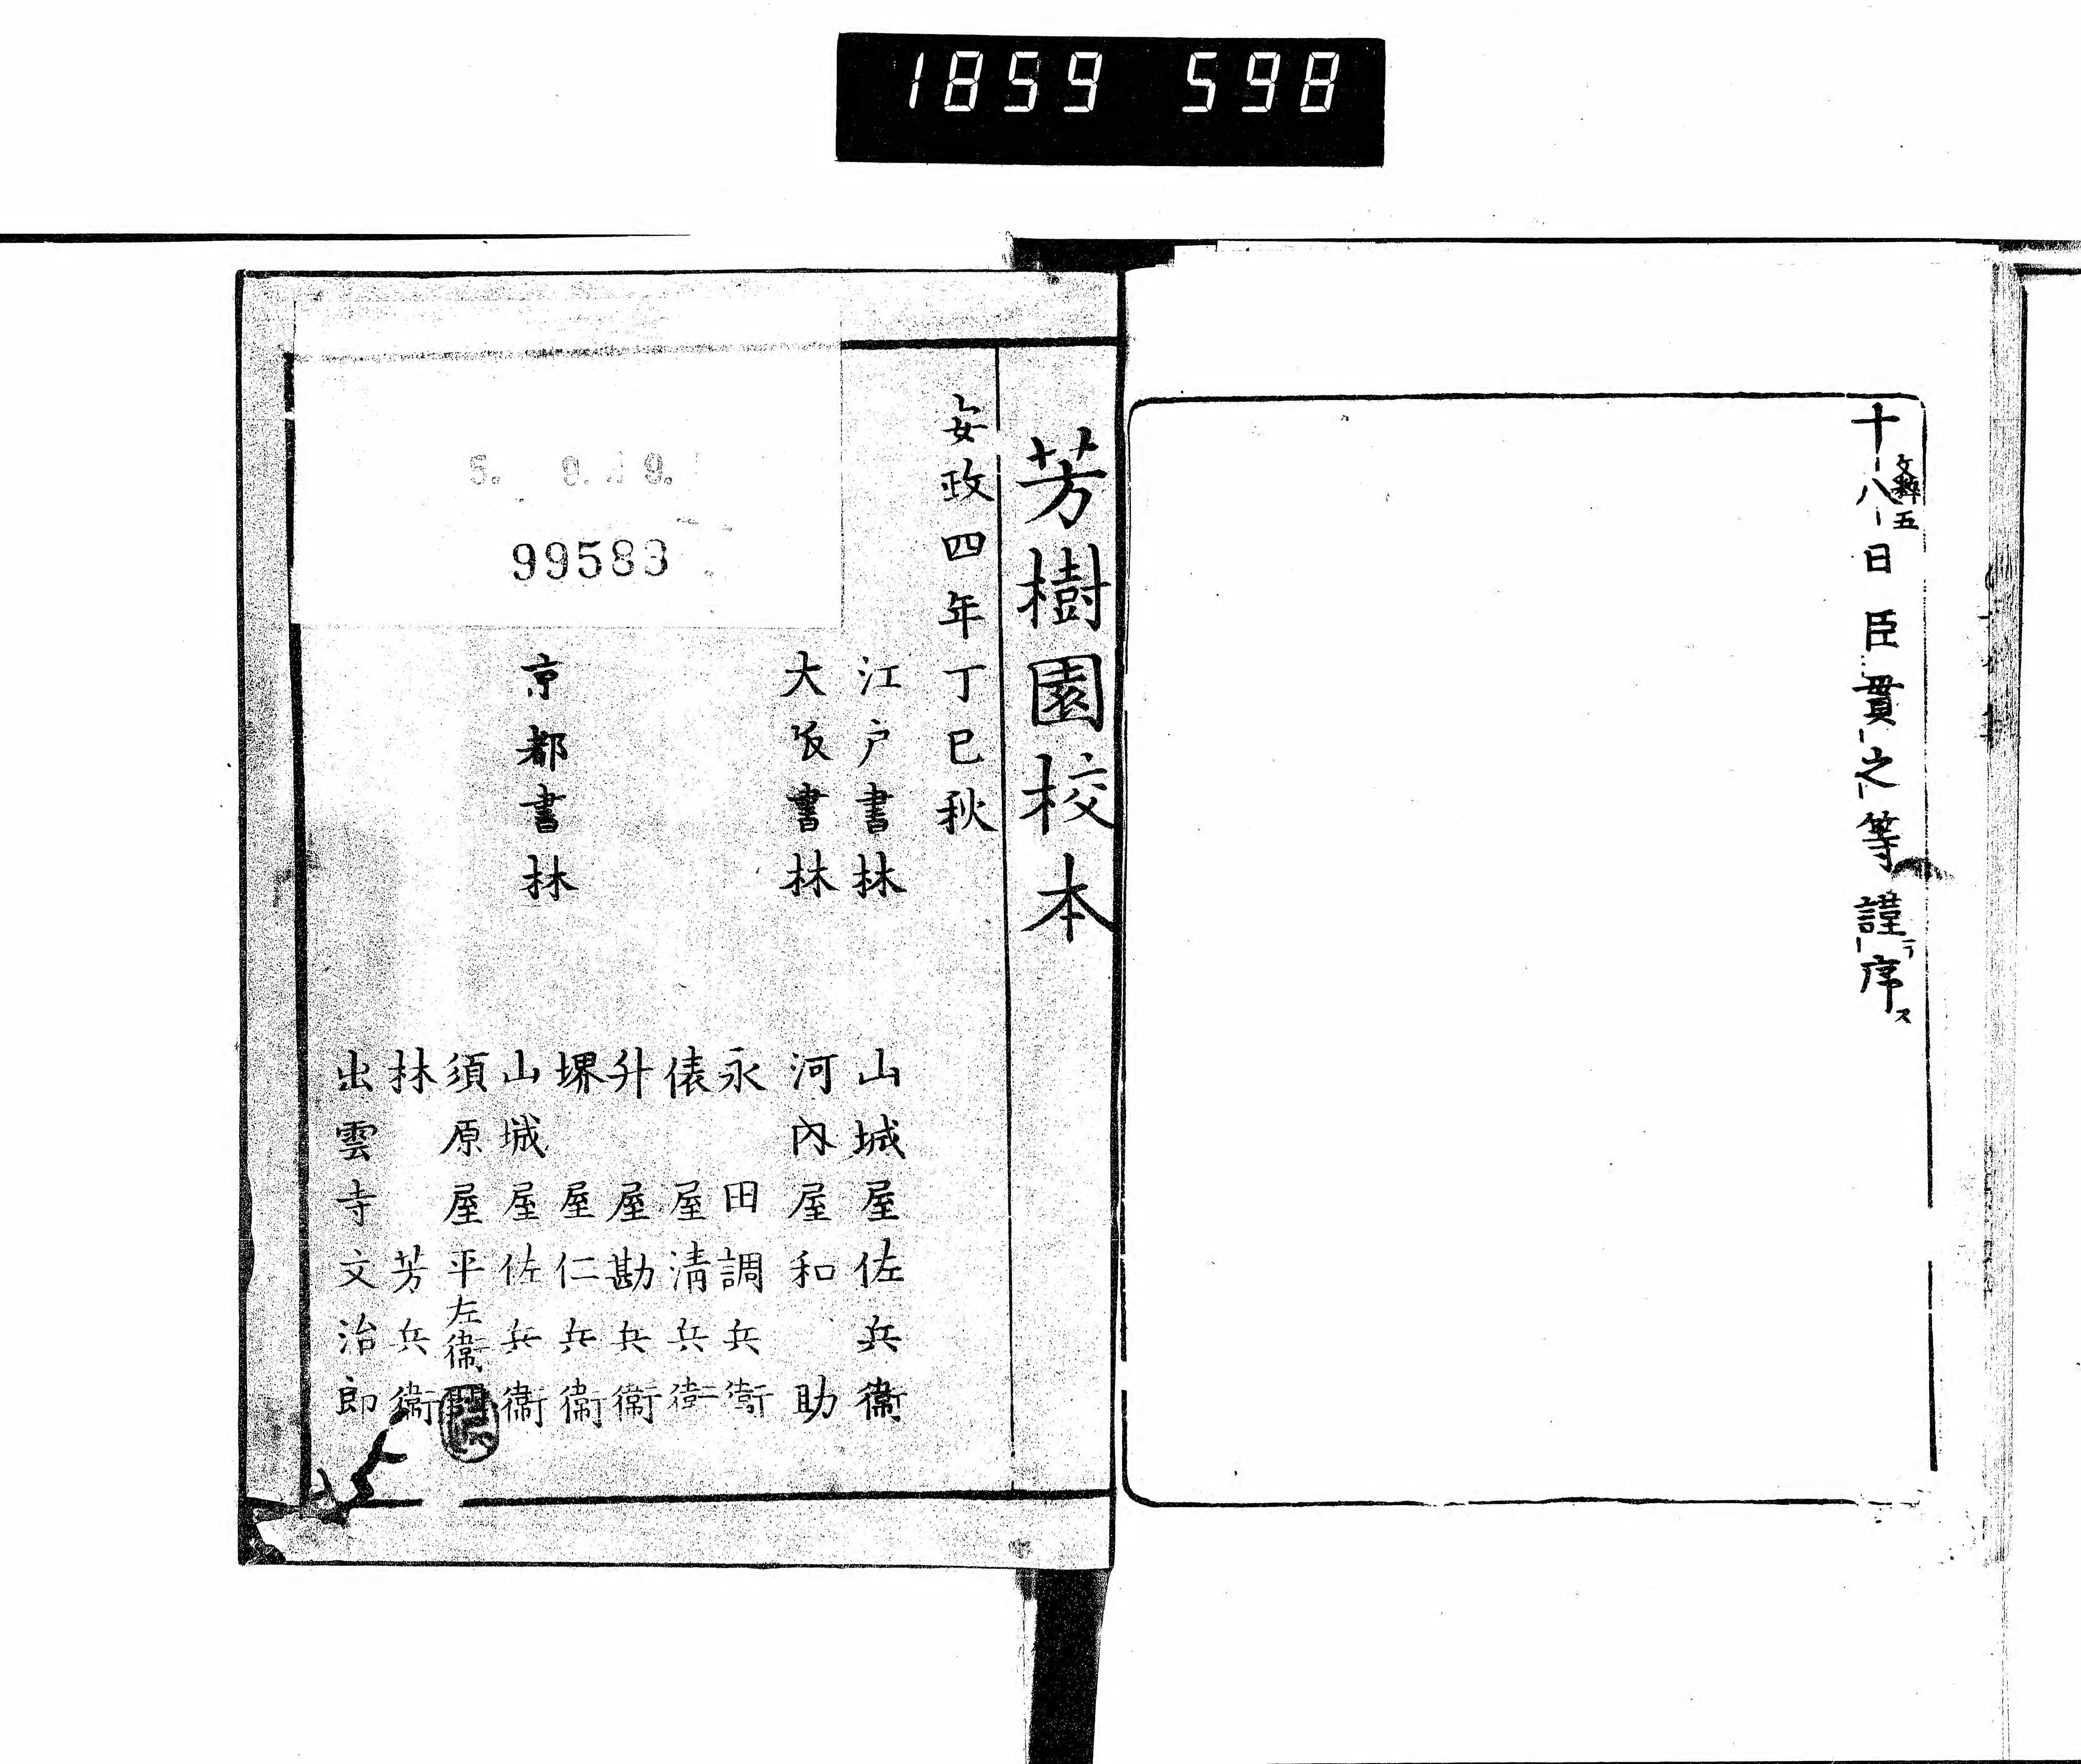 1859 598
十八日臣貫之等謹序
文粹五
ラ
ス
芳樹園校本
安政四年丁巳秋
江戸書林 山城屋佐兵衞
大阪書林 河内屋和助
京都書林
永田調兵衞
俵屋清兵衞
升屋勘兵衞
堺屋仁兵衞
山城屋佐兵衞
須原屋平左衞門
林芳兵衞
出雲寺文治郎
99583